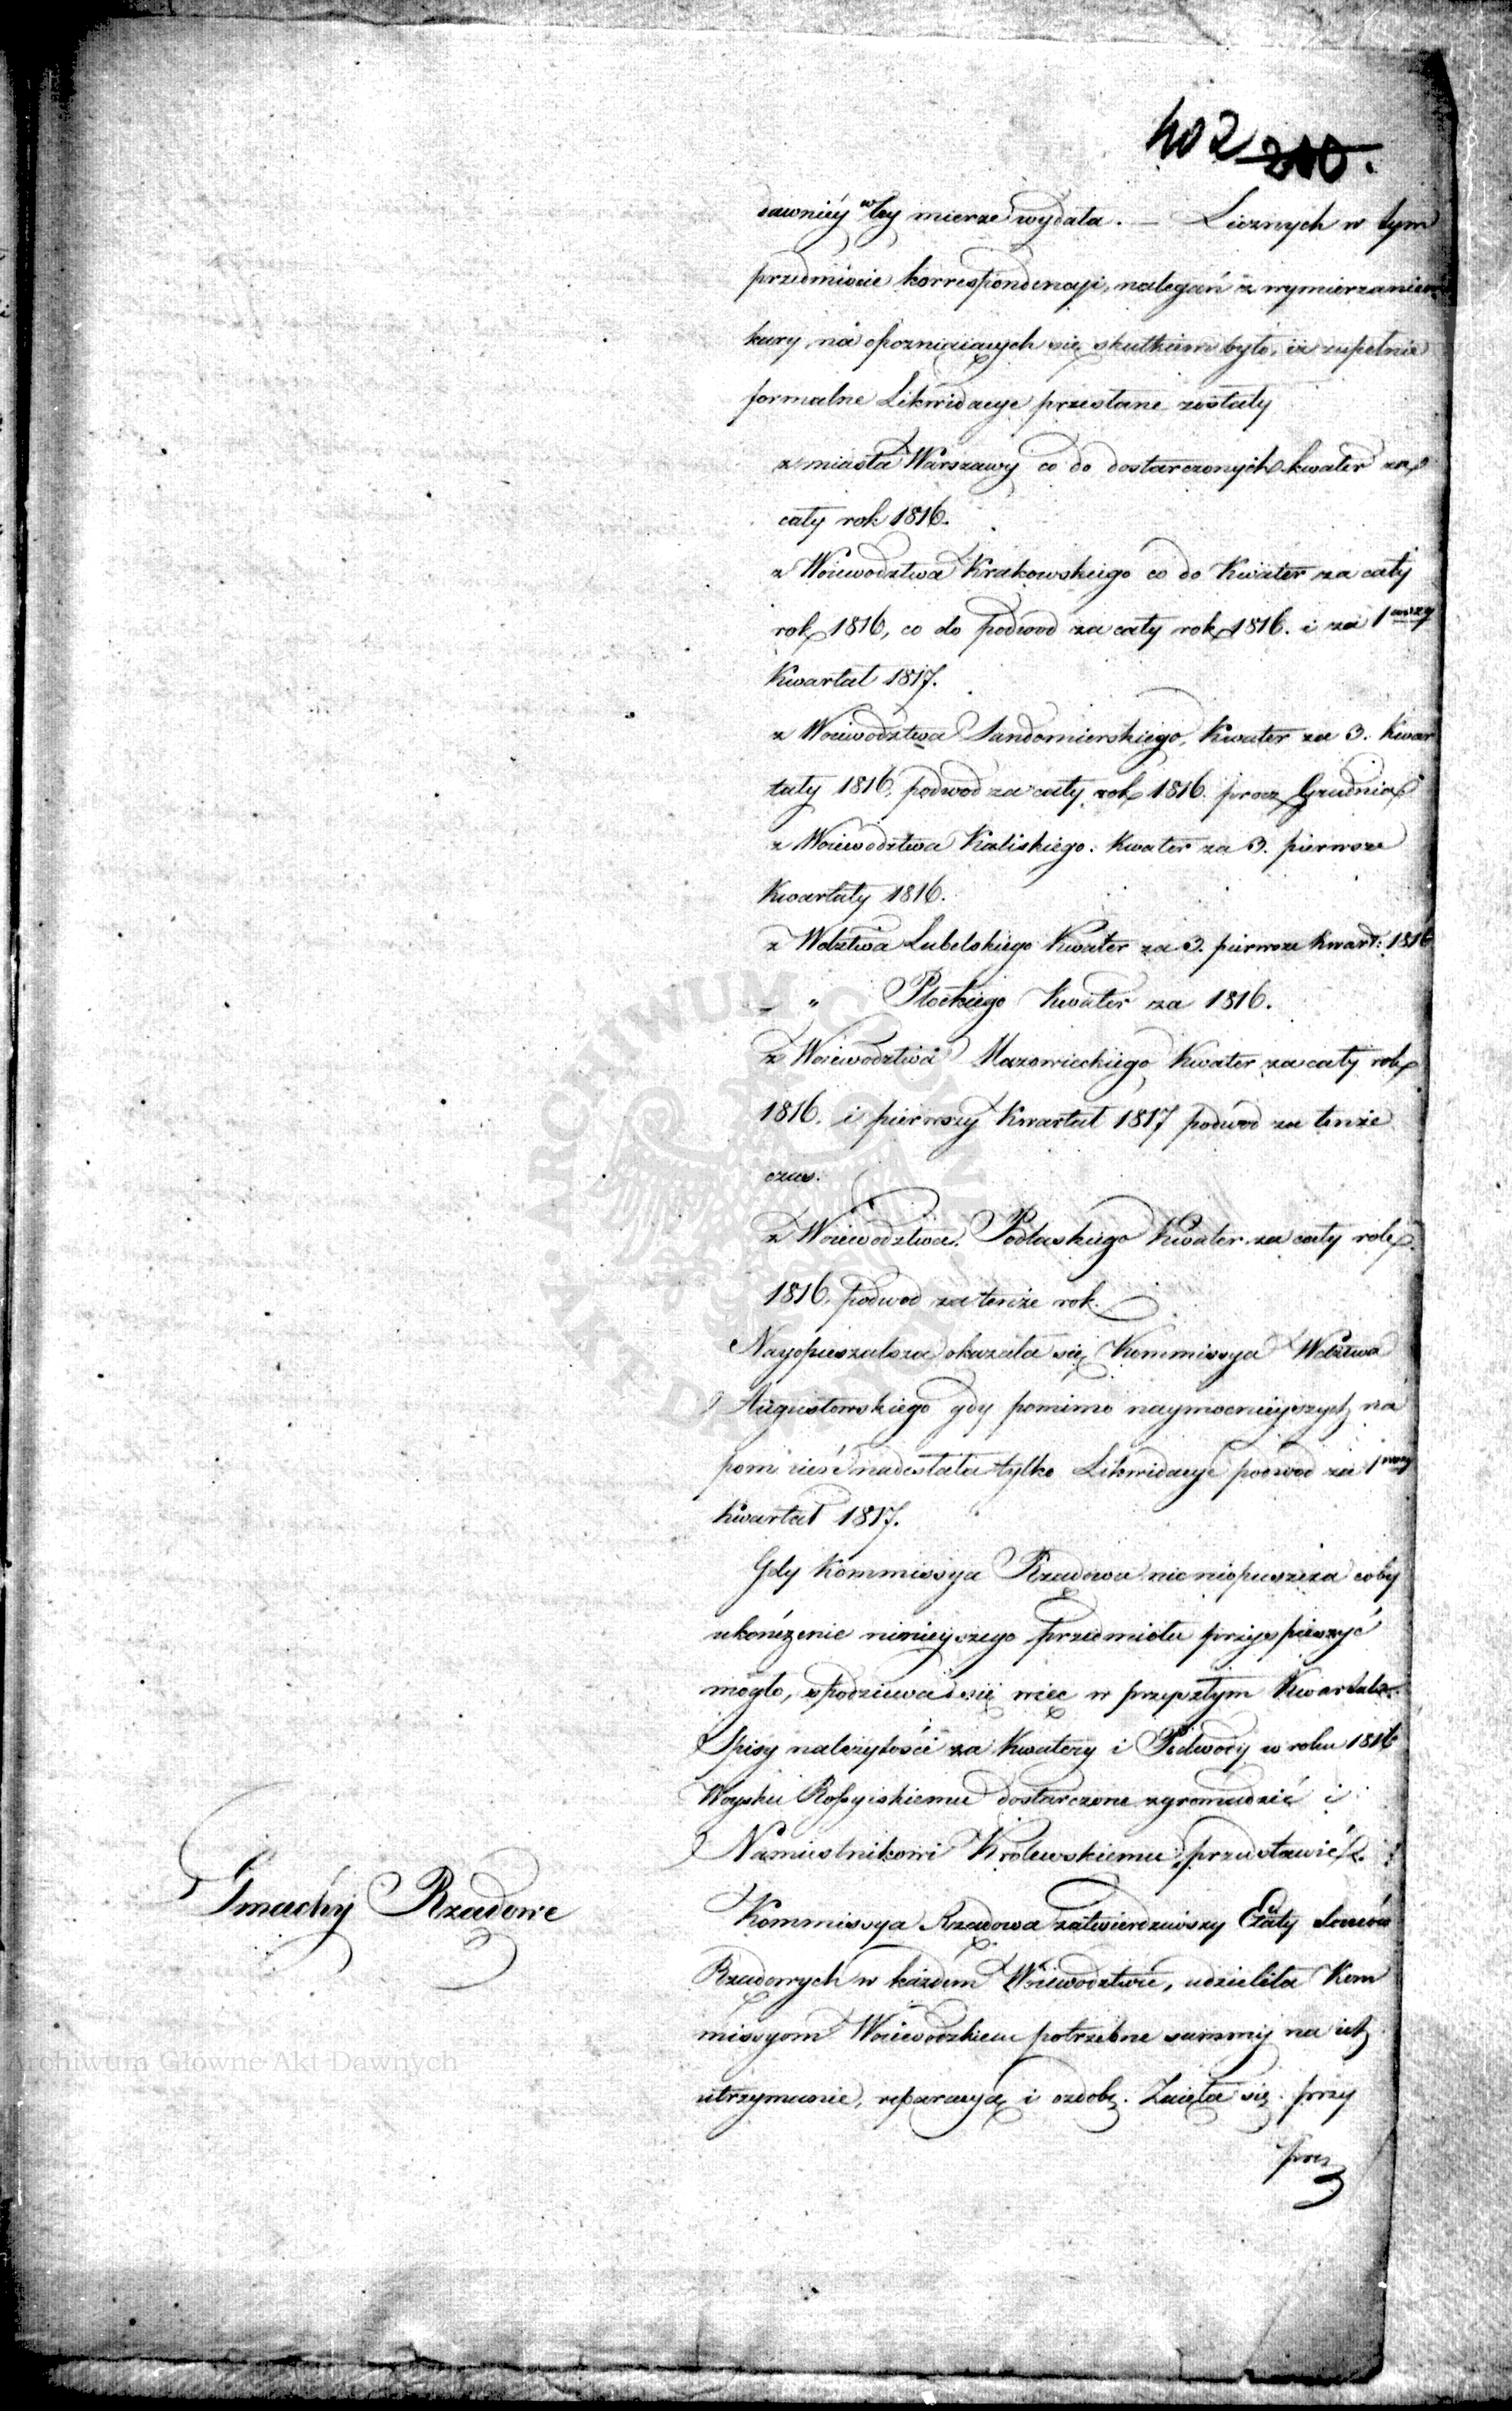 402 200.
dawniéy w téy mierze wydała. — Licznych w tym
przedmiocie korrespondencyi, nalegań i wymierzaniem
kary na opozniaiących się skutkiem było, iż zupełnie
formalne Likwidacye przesłane zostały
z miasta Warszawy co do dostarczonych kwater za
cały rok 1816.
z Woiewodztwa Krakowskiego co do Kwater za cały
rok 1816, co do podwod za cały rok 1816. i za 1wszy
Kwartał 1817.
z Woiewodztwa Sandomierskiego, Kwater za 3. Kwar
tały 1816. podwod za cały rok 1816. procz Grudnia
z Woiewodztwa Kaliskiego. Kwater za 3. pierwsze
Kwartały 1816.
z Wdztwa Lubelskiego Kwater za 3. pierwsze Kwart: 1816
— " Płockiego Kwater za 1816.
z Woiewodztwa Mazowieckiego Kwater za cały rok
1816. i pierwszy Kwartał 1817 podwod za tenże
czas.
z Woiewodztwa Podlaskiego Kwater za cały rok
1816. podwod za tenże rok.
Nayopieszalsza okazała się Kommissya Wdztwa
Augustowskiego gdy pomimo naymocnieyszych na
pomnień nadesłała tylko Likwidacye podwod za 1wszy
Kwartał 1817.
Gdy Kommissya Rządowa nic nieopuszcza coby
ukończenie ninieyszego przedmiotu przyspieszyć
mogło, spodziewa się więc w przyszłym Kwartale
Spisy należytości za Kwatery i Podwody w roku 1816
Woysku Rossyiskiemu dostarczone zgromadzić i
Namiestnikowi Królewskiemu przedstawić.
Gmachy Rządowe
Kommissya Rządowa zatwierdziwszy Etaty domów
Rządowych w każdem Woiewodztwie, udzieliła Kom
missyom Woiewodzkiem potrzebne summy na ich
utrzymanie, reparacyą i ozdobę. Zaięła się przy
prz
Archiwum Główne Akt Dawnych
ARCHIWUM GŁÓWNE AKT DAWNYCH